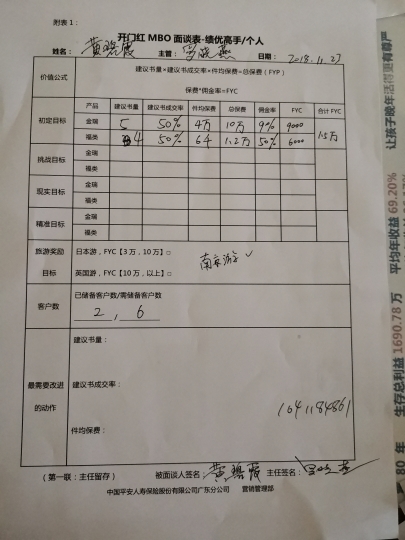 附表1：
开门红 MBO 面谈表-绩优高手/个人
姓名： 黄碧霞 主管： 日期： 2018.11.27
价值公式 建议书量×建议书成交率×件均保费=总保费（FYP）
保费*佣金率=FYC
产品 建议书量 建议书成交率 件均保费 总保费 佣金率 FYC 合计 FYC
初定目标 金瑞 5 50% 4万 10万 9% 9000 1.5万
福类 4 50% 6千 1.2万 50% 6000
挑战目标 金瑞
福类
现实目标 金瑞
福类
精准目标 金瑞
福类
旅游奖励 日本游，FYC【3万，10万】□ 南京游✓
目标 英国游，FYC【10万，以上】□
客户数 已储备客户数/需储备客户数
2，6
建议书量：
最需要改进 建议书成交率：
的动作 1641184861
件均保费：
（第一联：主任留存） 被面谈人签名： 黄碧霞 主任签名：
中国平安人寿保险股份有限公司广东分公司 营销管理部
让孩子晚年活得更有尊严
平均年收益 69.20%
80 年 生存总利益 1690.78 万